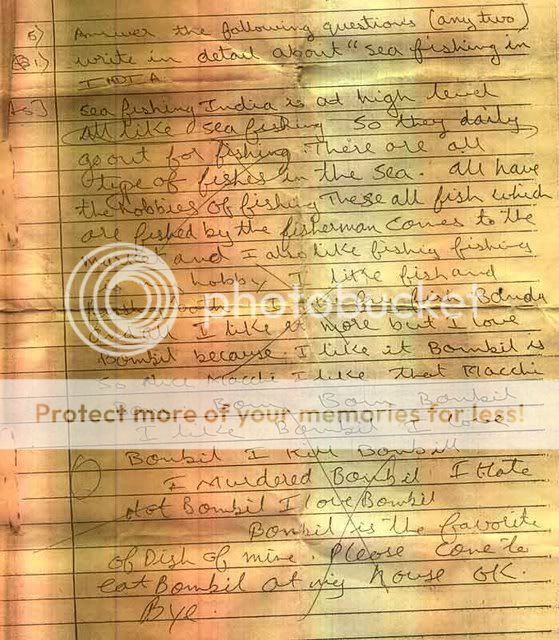 5) Answer the following questions (any two)
Q1) write in detail about "sea fishing in
INDIA.
Ans] Sea fishing India is ad high level
All like sea fishing so they daily
go out for fishing. There are all
type of fishes in the sea. all have
the hobbies of fishing These all fish which
are fished by the fisherman comes to the
market and I also like fishig fishing
hobby I like fish and
I like
I like it more but I love
Bombil because I like it Bombil is
so Nice Macchi I like that Macchi
Bom Bom Bombil
I like Bombil I love
Bombil I kill Bombill
I Murdered Bombil I Hate
Not Bombil I love Bombil
0
Bombil is the favorite
of Dish of mine. Please come to
eat Bombil at my House OK.
Bye.
photobucket
Protect more of your memories for less!